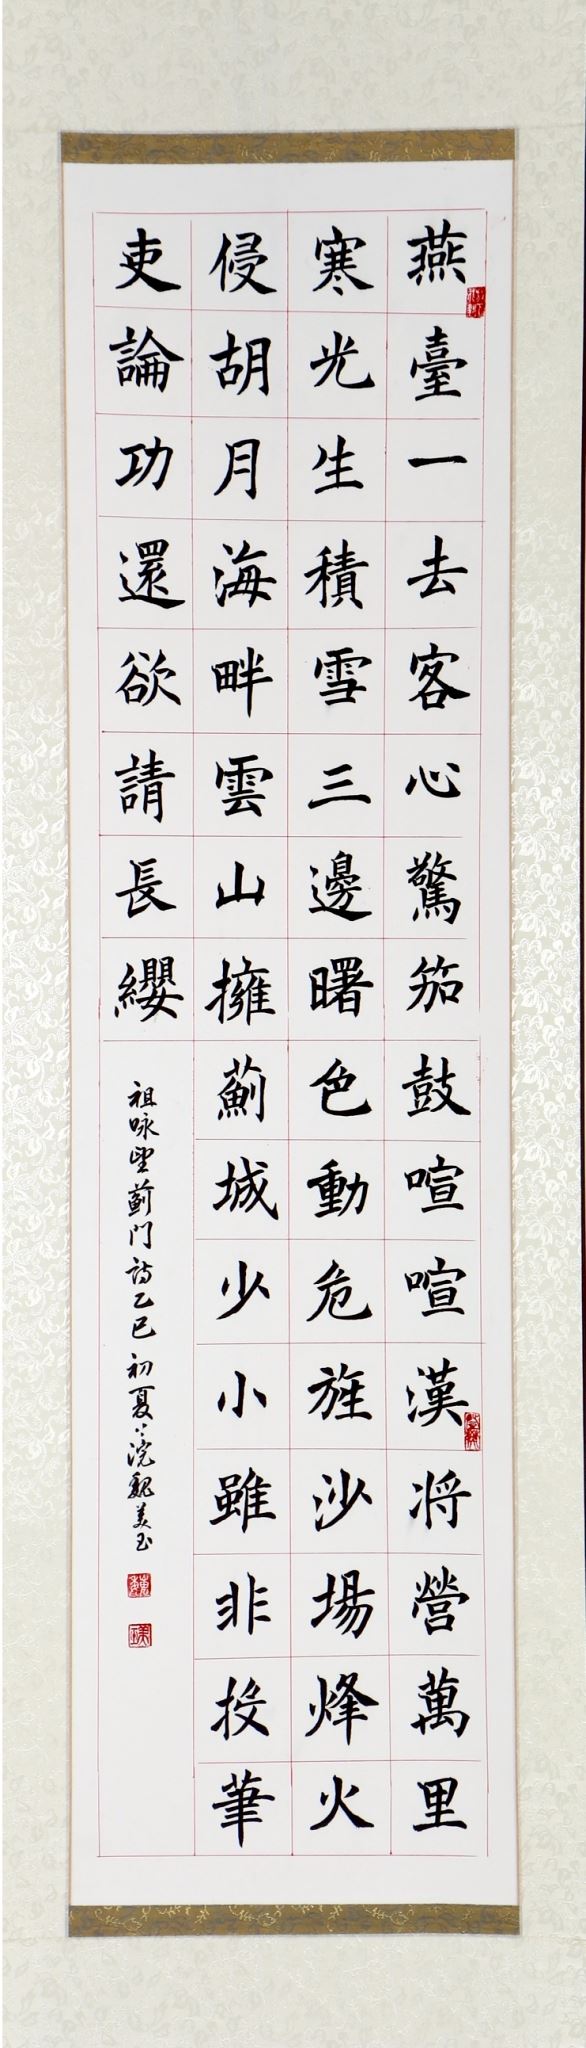 燕臺一去客心驚笳鼓喧喧漢将營萬里
寒光生積雪三邊曙色動危旌沙場烽火
侵胡月海畔雲山擁薊城少小雖非投筆
吏論功還欲請長纓
祖咏望薊門詩乙巳初夏於浣魏美玉